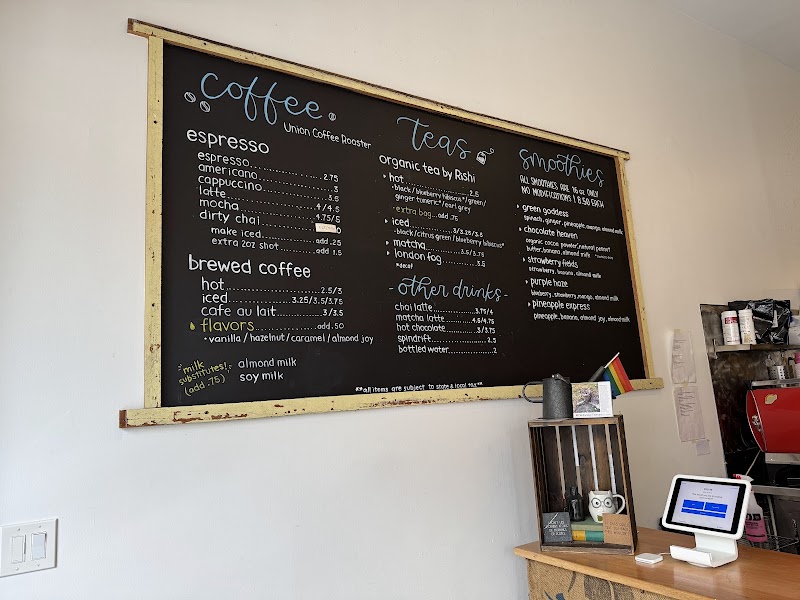 coffee
Union Coffee Roaster
espresso
espresso
americano 2.75
cappuccino 3
latte 3.5
mocha 4/4.5
dirty chai 4.75/5
make iced add .25
extra 2oz shot add 1.5
brewed coffee
hot 2.5/3
iced 3.25/3.5/3.75
cafe au lait 3/3.5
flavors add .50
vanilla/hazelnut/caramel/almond joy
"milk substitutes!" (add .75)
almond milk
soy milk
teas
organic tea by Rishi
hot 2.5
black/blueberry hibiscus*/green/
ginger tumeric*/earl grey
extra bag...add .75
iced 3/3.25/3.5
black/citrus green/blueberry hibiscus*
matcha 3.5/3.75
london fog 3.5
*decaf
-other drinks-
chai latte 3.75/4
matcha latte 4.5/4.75
hot chocolate 3/3.75
spindrift 2.5
bottled water 2
smoothies
ALL SMOOTHIES ARE 16 oz ONLY
NO MODIFICATIONS! 8.50 EACH
green goddess
spinach, ginger, pineapple, mango, almond milk
chocolate heaven
organic cocoa powder, natural peanut
butter, banana, almond milk
strawberry fields
strawberry, banana, almond milk
purple haze
blueberry, strawberry, mango, almond milk
pineapple express
pineapple, banana, almond joy, almond milk
**all items are subject to state & local tax**